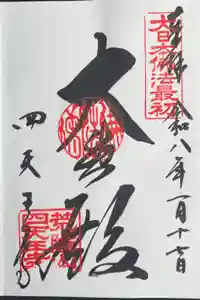 奉拝
令和八年一月十七日
大日本佛法最初
大黒殿
四天王寺
荒陵山
四天王寺